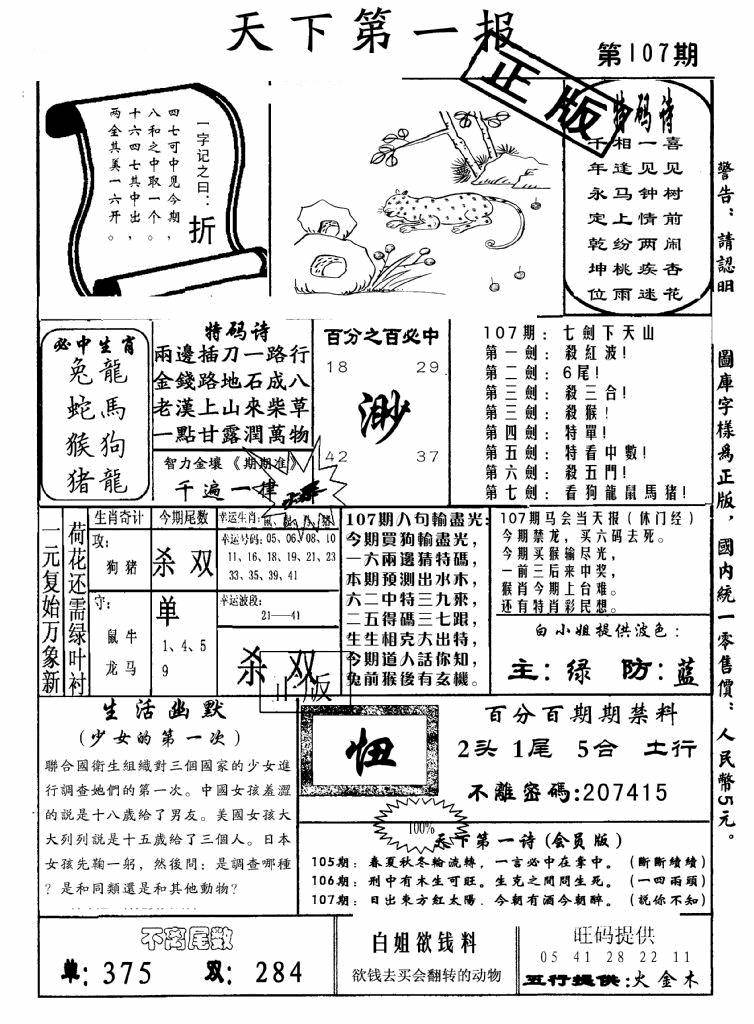 天下第一报
第107期
正版
一字记之曰：
折
四七可中见今期，
八和之中取一个。
十六四七其中出，
两全其美一六开。
特码诗
千年永定乾坤位
相逢马上纷桃雨
一见钟情两疾迷
喜见树前闹杏花
警告：請認明
圖庫字樣爲正版，國内統一零售價：人民幣5元。
必中生肖
兔龍
蛇馬
猴狗
猪龍
特码诗
兩邊插刀一路行
金錢路地石成八
老漢上山來柴草
一點甘露潤萬物
智力金壤《期期准》
千遍一律
百分之百必中
18 29
渺
42 37
107期：七劍下天山
第一劍：殺紅波!
第二劍：6尾!
第三劍：殺三合!
第三劍：殺猴!
第四劍：特單!
第五劍：特看中數!
第六劍：殺五門!
第七劍：看狗龍鼠馬猪!
一元复始万象新
荷花还需绿叶衬
生肖奇计
攻:
狗猪
守:
鼠牛
龙马
今期尾数
杀双
单
1、4、5
9
幸运生肖:
幸运号码: 05、06、08、10
11、16、18、19、21、23
33、35、39、41
幸运波段:
21——41
杀双
正版
107期八句輸盡光:
今期買狗輸盡光，
一六兩邊猜特碼，
本期預測出水木，
六二中特三九來，
二五得碼三七跟，
生生相克大出特，
今期道人話你知，
兔前猴後有玄機。
107期马会当天报(休门经)
今期禁龙，买六码去死。
今期买猴输尽光，
一前三后来中奖，
猴肖今期上台难。
还有特肖彩民想。
白小姐提供波色：
主：绿 防：蓝
生活幽默
(少女的第一次)
聯合國衛生組織對三個國家的少女進
行調查她們的第一次。中國女孩羞澀
的説是十八歲給了男友。美國女孩大
大列列説是十五歲給了三個人。日本
女孩先鞠一躬，然後問：是調查哪種
？是和同類還是和其他動物？
忸
百分百期期禁料
2头1尾 5合 土行
不離密碼:207415
100%
天下第一诗(会员版)
105期：春夏秋冬輪流轉，一言必中在掌中。(斷斷續續)
106期：刑中有木生可旺。生克之間問生死。(一四兩頭)
107期：日出東方紅太陽．今朝有酒今朝醉。(説你不知)
不离尾数
单: 375 双: 284
白姐欲钱料
欲钱去买会翻转的动物
旺码提供
05 41 28 22 11
五行提供:火金木